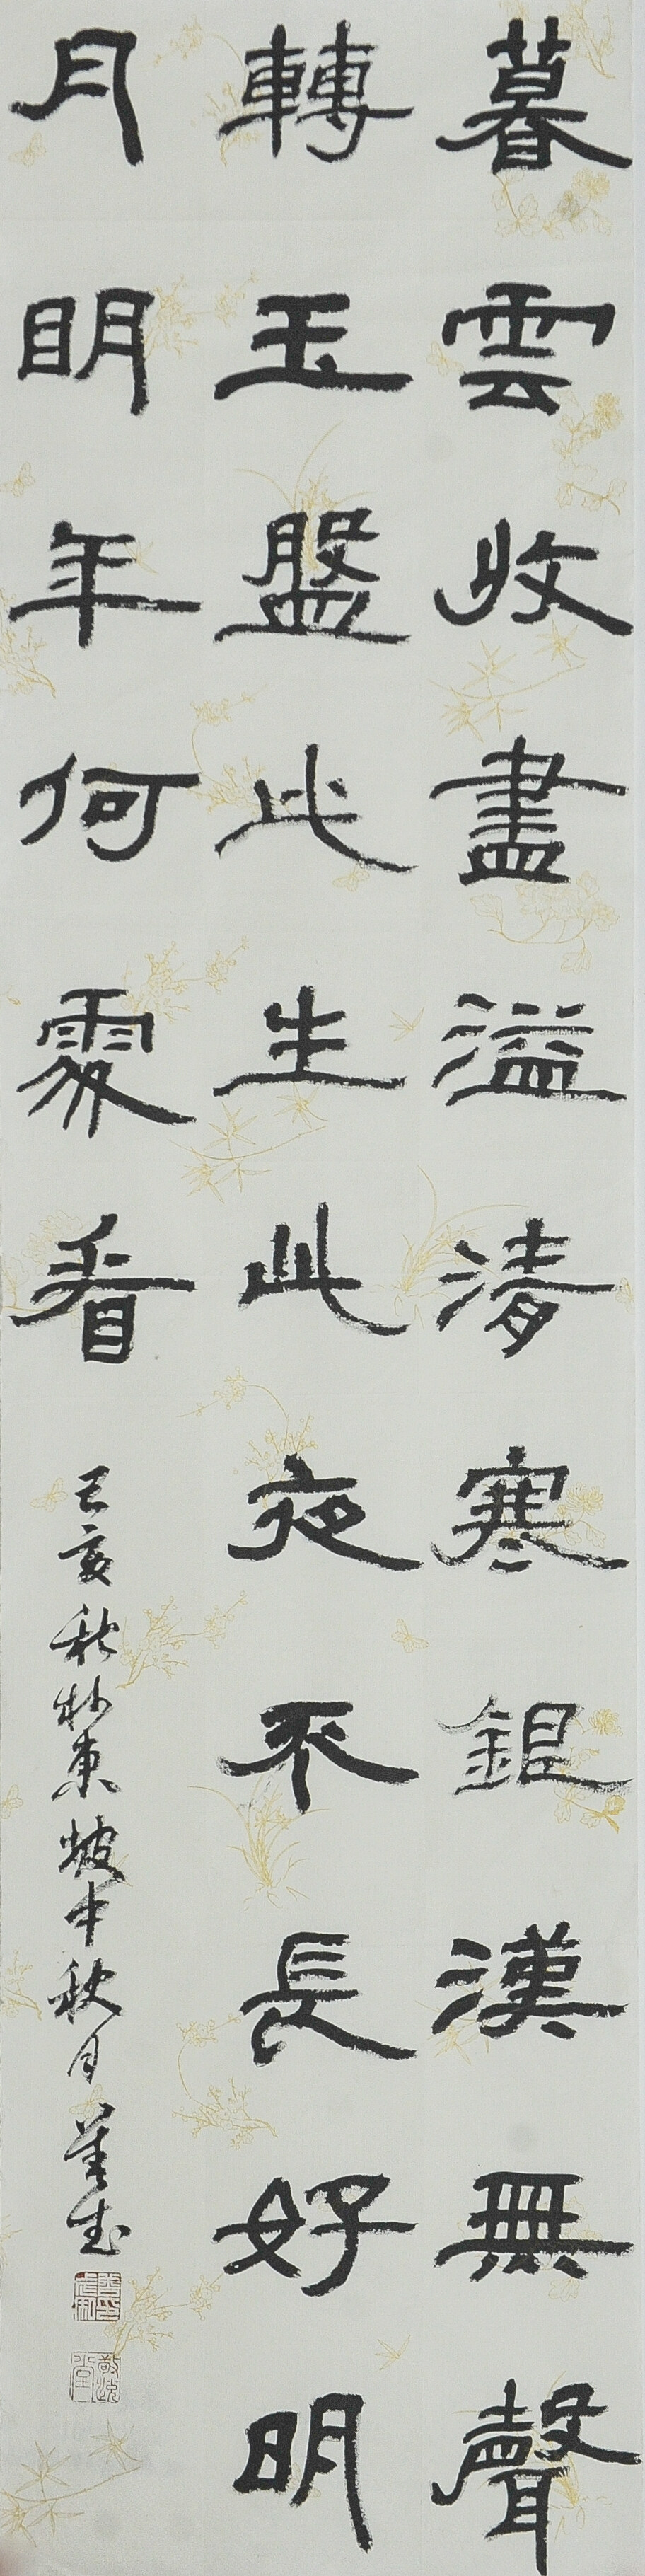 暮雲收盡溢清寒銀漢無聲
轉玉盤此生此夜不長好明
月明年何處看
己亥秋杪東坡中秋月 善武